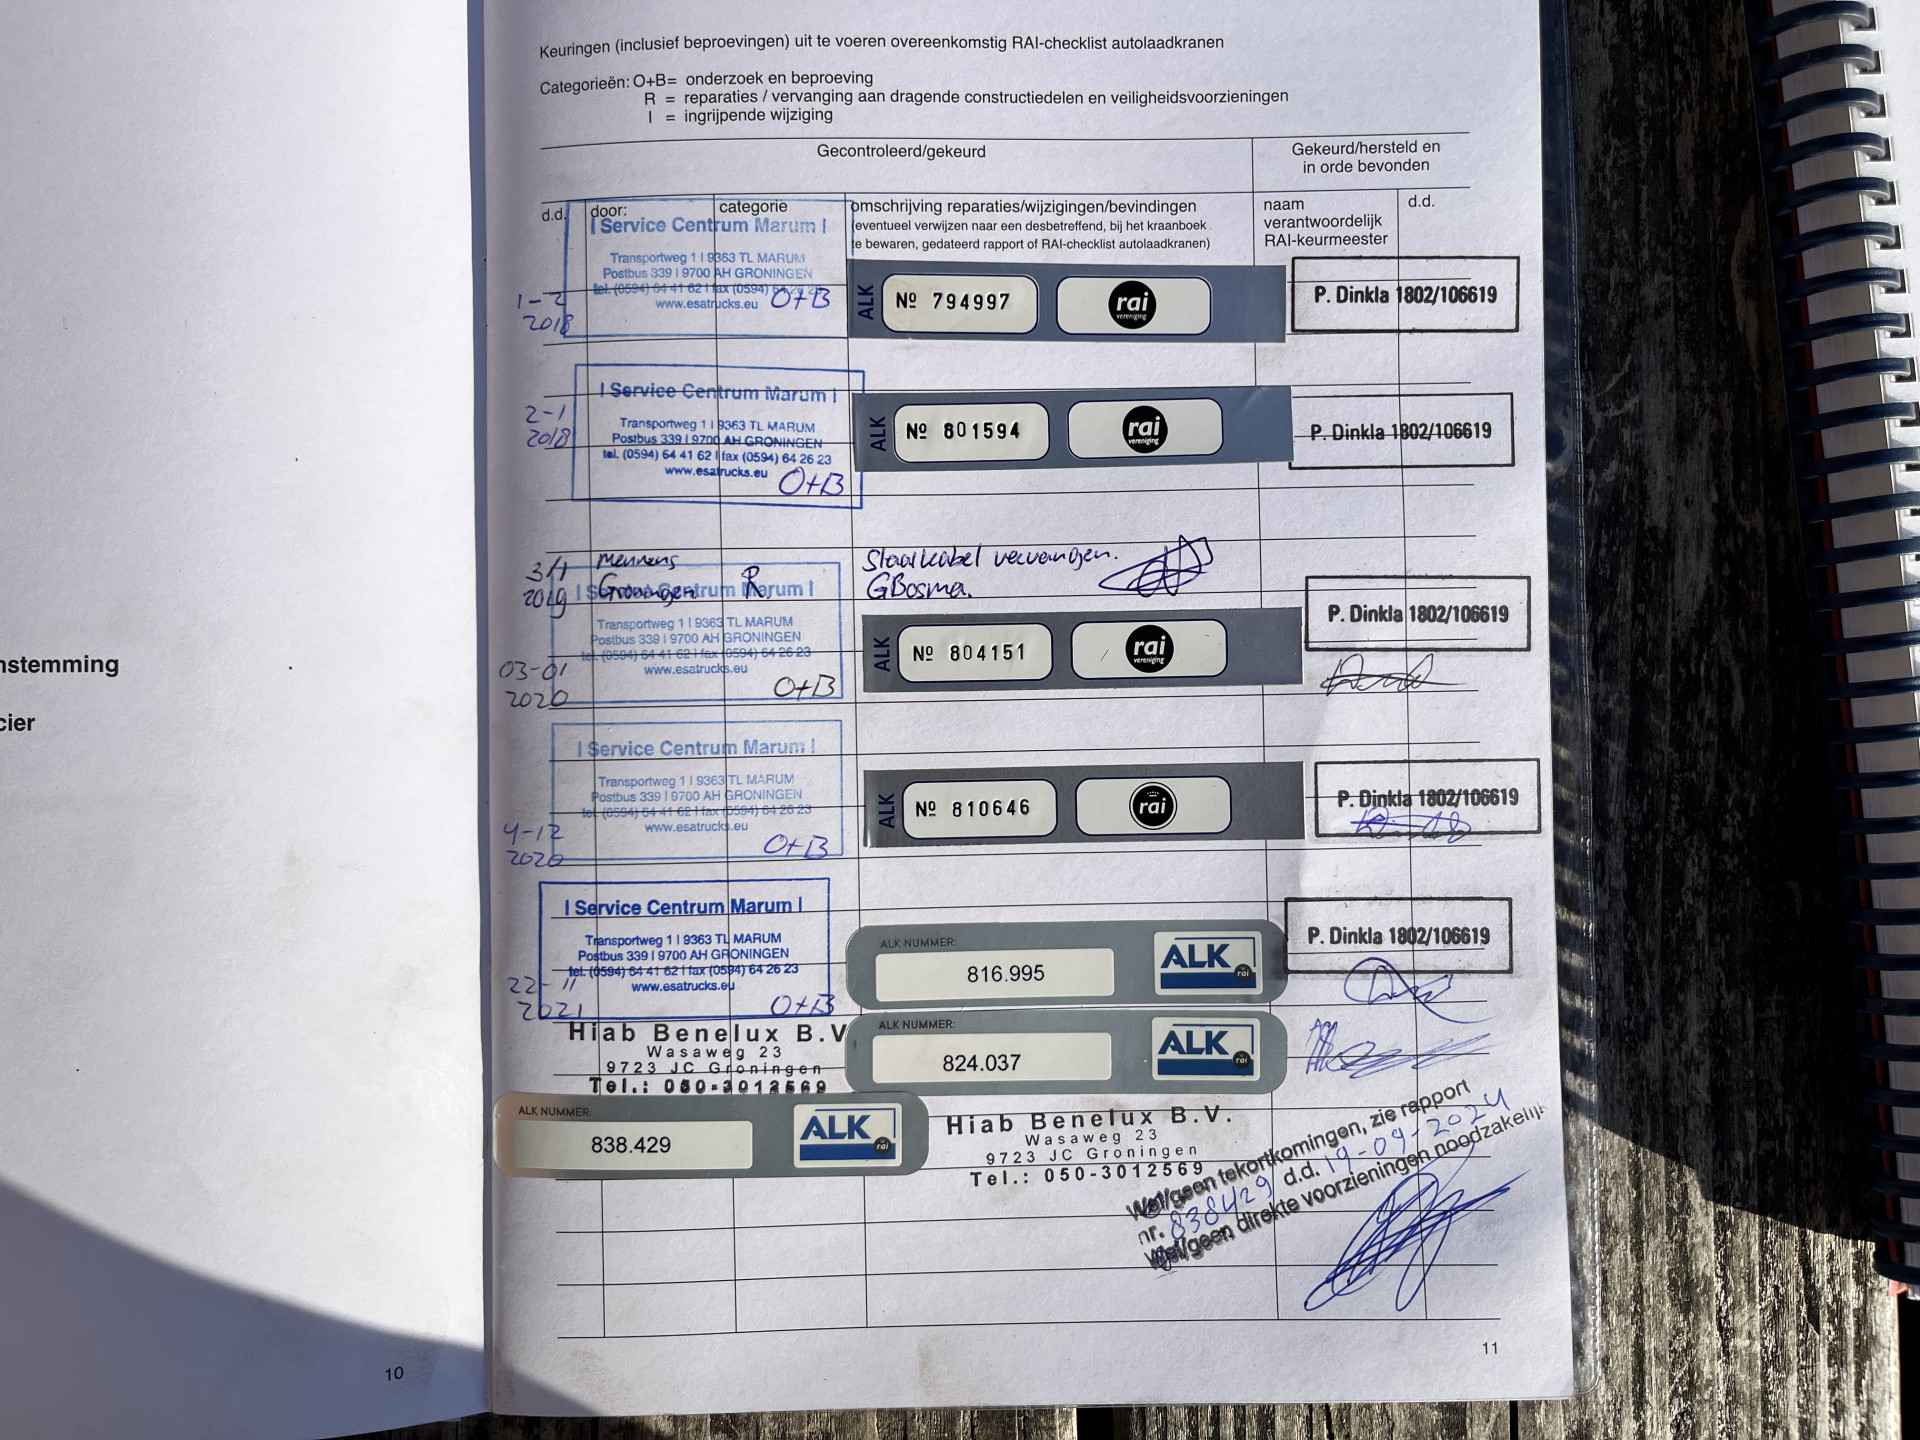 Keuringen (inclusief beproevingen) uit te voeren overeenkomstig RAI-checklist autolaadkranen
Categorieën: O+B= onderzoek en beproeving
R = reparaties / vervanging aan dragende constructiedelen en veiligheidsvoorzieningen
I = ingrijpende wijziging
Gecontroleerd/gekeurd
Gekeurd/hersteld en
in orde bevonden
d.d.
door:
categorie
omschrijving reparaties/wijzigingen/bevindingen
(eventueel verwijzen naar een desbetreffend, bij het kraanboek
te bewaren, gedateerd rapport of RAI-checklist autolaadkranen)
naam
verantwoordelijk
RAI-keurmeester
d.d.
| Service Centrum Marum |
Transportweg 1 | 9363 TL MARUM
Postbus 339 | 9700 AH GRONINGEN
tel. (0594) 64 41 62 | fax (0594) 64 26 23
www.esatrucks.eu
O+B
1-2
2018
ALK
Nº 794997
rai
vereniging
P. Dinkla 1802/106619
| Service Centrum Marum |
Transportweg 1 | 9363 TL MARUM
Postbus 339 | 9700 AH GRONINGEN
tel. (0594) 64 41 62 | fax (0594) 64 26 23
www.esatrucks.eu
O+B
2-1
2018
ALK
Nº 801594
rai
vereniging
P. Dinkla 1802/106619
3/1
2019
Mennens
Groningen
R
Staalkabel vervangen.
GBosma.
| Service Centrum Marum |
Transportweg 1 | 9363 TL MARUM
Postbus 339 | 9700 AH GRONINGEN
tel. (0594) 64 41 62 | fax (0594) 64 26 23
www.esatrucks.eu
O+B
03-01
2020
ALK
Nº 804151
rai
vereniging
P. Dinkla 1802/106619
| Service Centrum Marum |
Transportweg 1 | 9363 TL MARUM
Postbus 339 | 9700 AH GRONINGEN
tel. (0594) 64 41 62 | fax (0594) 64 26 23
www.esatrucks.eu
O+B
4-12
2020
ALK
Nº 810646
rai
P. Dinkla 1802/106619
| Service Centrum Marum |
Transportweg 1 | 9363 TL MARUM
Postbus 339 | 9700 AH GRONINGEN
tel. (0594) 64 41 62 | fax (0594) 64 26 23
www.esatrucks.eu
O+B
22-11
2021
ALK NUMMER:
816.995
ALK
rai
P. Dinkla 1802/106619
Hiab Benelux B.V
Wasaweg 23
9723 JC Groningen
Tel.: 050-3012569
ALK NUMMER:
824.037
ALK
rai
ALK NUMMER:
838.429
ALK
rai
Hiab Benelux B.V.
Wasaweg 23
9723 JC Groningen
Tel.: 050-3012569
Wel/geen tekortkomingen, zie rapport
nr. 838429 d.d. 19-09-2024
Wel/geen direkte voorzieningen noodzakelijk
11
nstemming
cier
10